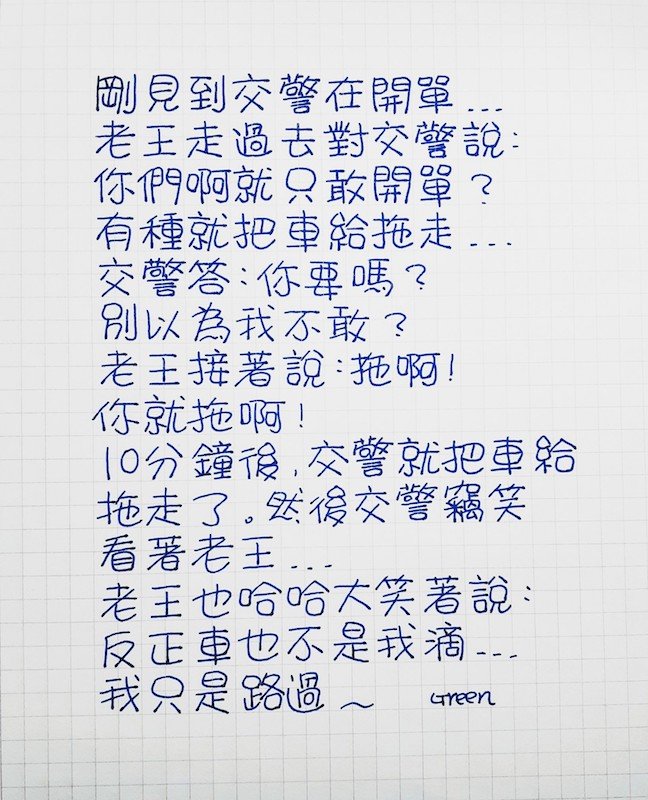 剛見到交警在開單...
老王走過去對交警說:
你們啊就只敢開單?
有種就把車給拖走...
交警答:你要嗎?
別以為我不敢?
老王接著說:拖啊!
你就拖啊!
10分鐘後,交警就把車給
拖走了。然後交警竊笑
看著老王...
老王也哈哈大笑著說:
反正車也不是我滴...
我只是路過~ Green